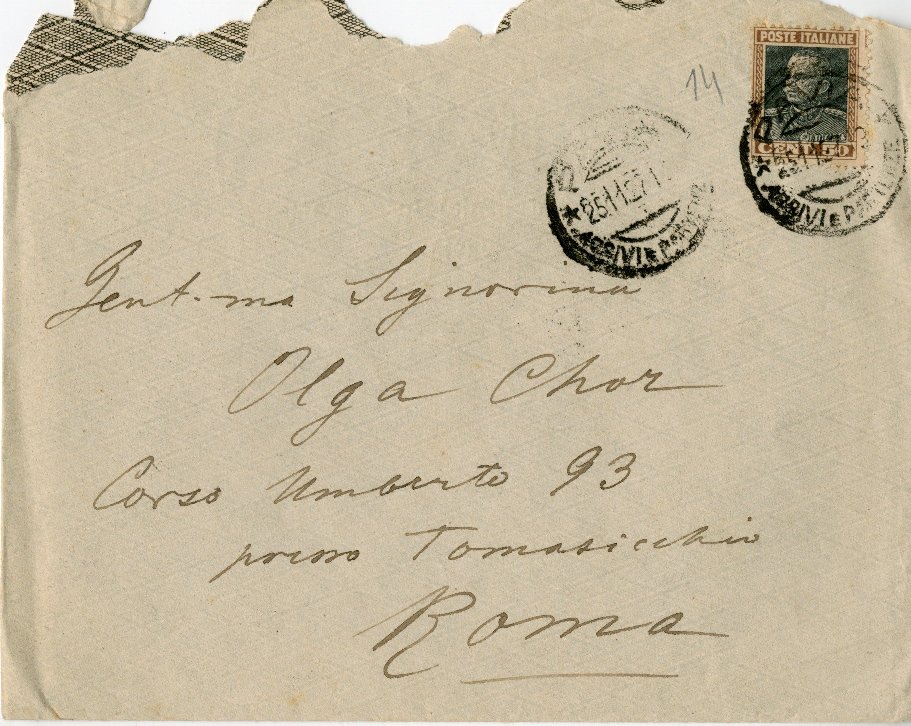 14
POSTE ITALIANE
CENT. 50
ARRIVI E PARTENZE
ARRIVI E PARTENZE
Gent.ma Signorina
Olga Chor
Corso Umberto 93
presso Tomasicchio
Roma